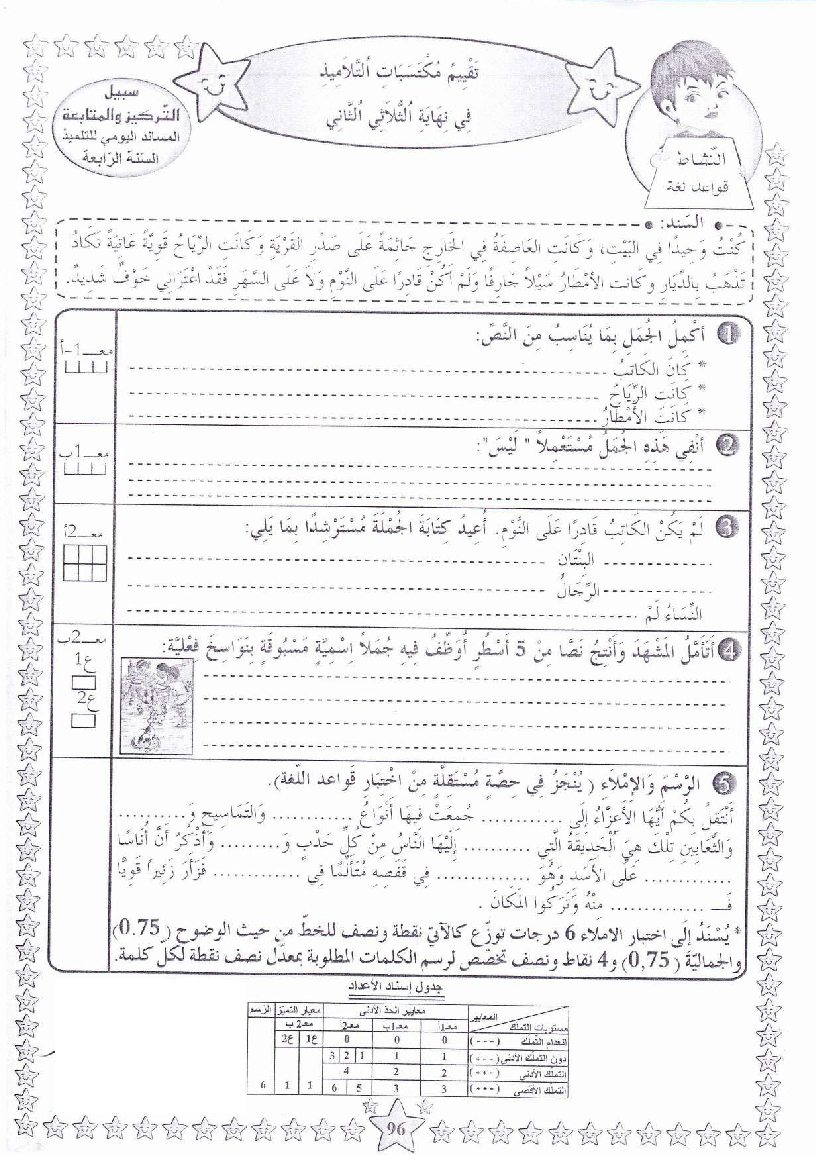 تَقْيِيمُ مُكْتَسَبَاتِ التَّلَامِيذِ
فِي نِهَايَةِ الثُّلَاثِي الثَّانِي
سبيل
التركيز والمتابعة
المساند اليومي للتلميذ
السنة الرابعة
النّشاط
قواعد لغة
السند:
كُنْتُ وَحِيدًا فِي البَيْتِ، وَكَانَتِ العَاصِفَةُ فِي الخَارِجِ جَاثِمَةً عَلَى صَدْرِ القَرْيَةِ وَكَانَتِ الرِّيَاحُ قَوِيَّةً عَاتِيَةً تَكَادُ
تَذْهَبُ بِالدِّيَارِ وَكَانَتِ الأَمْطَارُ سَيْلاً جَارِفًا وَلَمْ أَكُنْ قَادِرًا عَلَى النَّوْمِ وَلاَ عَلَى السَّهَرِ فَقَدْ اعْتَرَانِي خَوْفٌ شَدِيدٌ.
معـ1-أ
1 أُكْمِلُ الجُمَلَ بِمَا يُنَاسِبُ مِنَ النَّصِّ:
* كَانَ الكَاتِبُ
* كَانَتِ الرِّيَاحُ
* كَانَتِ الأَمْطَارُ
معـ1ب
2 أَنْفِي هَذِهِ الجُمَلَ مُسْتَعْمِلاً " لَيْسَ":
معـ2أ
3 لَمْ يَكُنْ الكَاتِبُ قَادِرًا عَلَى النَّوْمِ. أُعِيدُ كِتَابَةَ الجُمْلَةِ مُسْتَرْشِدًا بِمَا يَلِي:
البِنْتَانِ
الرِّجَالُ
النِّسَاءُ لَمْ
معـ2ب
ع1
ع2
4 أَتَأَمَّلُ المَشْهَدَ وَأُنْتِجُ نَصًّا مِنْ 5 أَسْطُرٍ أُوَظِّفُ فِيهِ جُمَلاً اسْمِيَّةً مَسْبُوقَةً بِنَوَاسِخَ فِعْلِيَّة:
5 الرَّسْمُ وَالإِمْلَاء ( يُنْجَزُ فِي حِصَّةٍ مُسْتَقِلَّةٍ مِنْ اخْتِبَارِ قَوَاعِدِ اللُّغَةِ).
أَنْتَقِلُ بِكُمْ أَيُّهَا الأَعِزَّاءُ إِلَى ............ جُمِعَتْ فِيهَا أَنْوَاعُ ............ وَالتَّمَاسِيحِ وَ..........
وَالثَّعَابِينِ تِلْكَ هِيَ الحَدِيقَةُ الَّتِي .......... إِلَيْهَا النَّاسُ مِنْ كُلِّ حَدْبٍ وَ.......... وَأَذْكُرُ أَنَّ أُنَاسًا
............ عَلَى الأَسَدِ وَهُوَ .............. فِي قَفَصِهِ مُتَأَلِّمًا فِي ............. فَزَأَرَ زَئِيرًا قَوِيًّا
فَـ .............. مِنْهُ وَتَرَكُوا المَكَانَ .
* يُسْنَدُ إِلَى اختبار الاملاء 6 درجات توزّع كالآتي نقطة ونصف للخطّ من حيث الوضوح (0.75)
والجماليّة (0,75) و4 نقاط ونصف تخصّص لرسم الكلمات المطلوبة بمعدّل نصف نقطة لكلّ كلمة.
جدول إسناد الأعداد
المعايير معايير الحد الأدنى معيار التميز الرسم
مستويات التملك معـ1أ معـ1ب معـ2أ معـ2 ب
انعدام التملك (---) 0 0 0 ع1 ع2
دون التملك الأدنى (+--) 1 1 1 2 3
التملك الأدنى (++-) 2 2 4
التملك الأقصى (+++) 3 3 5 6 1 1 6
96